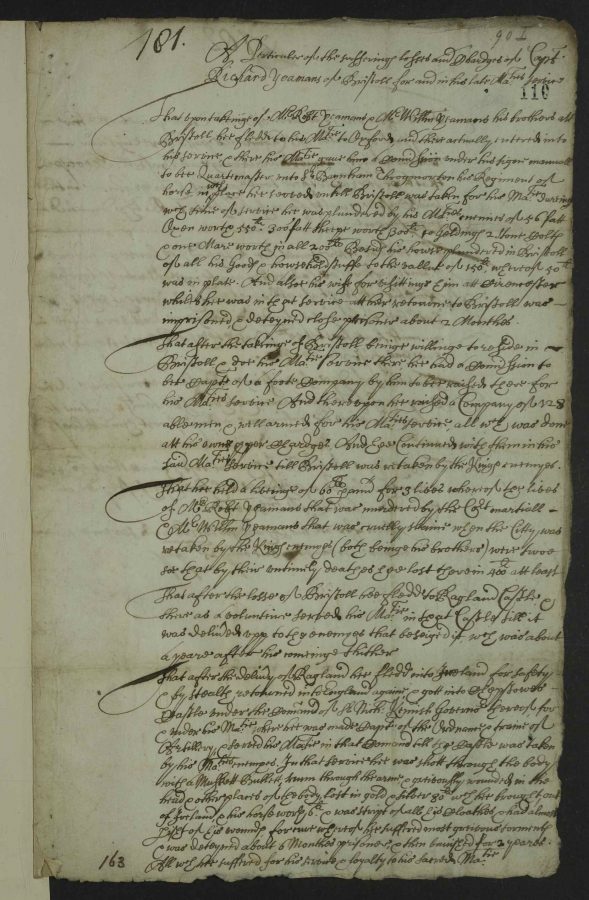 181.
901
A Perticuler of the sufferings losses and Chardges of Capt
Richard Yeamans of Bristoll for and in his late Maties service
110
That upon takinge of Mr Robt Yeamans & Mr Willm Yeamans his brothers att
Bristoll hee fledd to his Matie to Oxford and there actually entered into
his service & there his Matie gave him a Comission under his signe manuall
to bee Quartermaster unto Sr Throgmorton his Regiment of
horse in wch place hee served untill Bristoll was taken for his Matie During
wch time of service hee was plundered by his Maties enemies of 56 fatt
Oxen worth 550li 300 fatt sheepe worth 300li 30 2 Colts
& one Mare worth in all 200li Besides his howse plundered in Bristoll
of all his Goods & howshold stuffe to the vallue of 150li whereof 50li
was in plate. And alsoe his wife for visitting him att Cirencester
whiles hee was in that service att her retourne to Bristoll was
imprisoned & deteyned close prisoner about 2 Monthes
That after the takinge of Bristoll beinge willinge to reside in
Bristoll & doe his Matie service there hee had a Comission to
bee Capt of a foote Company by him to bee raised there for
his Maties service And thereupon hee raised a Company of 128
able men & well armed for his Maties service all wch was done
att his owne proper Chardge And hee Continued with them in his
said Maties service till Bristoll was retaken by the Kings enemyes.
That hee held a livinge of 60li p and for 3 lives whereof the lives
of Mr Robt Yeamans that was murdered by the Cort martiall
& Mr Willm Yeamans that was cruelly slaine when the Citty was
retaken by the Kings enemyes (both beinge his brothers) were twoe
soe that by their untimely deathes hee lost therein 400li att least
That after the losse of Bristoll hee fledd to Ragland Castle &
there as a voluntire served his Matie in that Castle till it
was delivered upp to the enemyes that beseiged it wch was about
a yeare after his cominge thither
That after the delivery of Ragland hee fledd into Ireland for safety
& by stealth retourned into England againe & gott into Chepstowe
Castle under the Comand of Sr Nich Kemish Governor thereof for
& under his Matie where hee was made Capt of the Ordnance & traine of
Artillery & served his Matie in that Comand till the Castle was taken
by his Maties enemyes. In that service hee was shott through the body
with a Muskett bullett, runn through the arme & greivously wounded in the
head & other places of the body lost in gold & silver 30li wch hee brought out
of Ireland, & his horse worth 6li & was stript of all his Cloathes & had almost
dyed of his wounds for cure whereof hee suffered most greivous torments
& was deteyned about 6 Monthes prisoner & then banished for 2 yeares.
All wch hee suffered for his service & loyalty to his sacred Matie
163